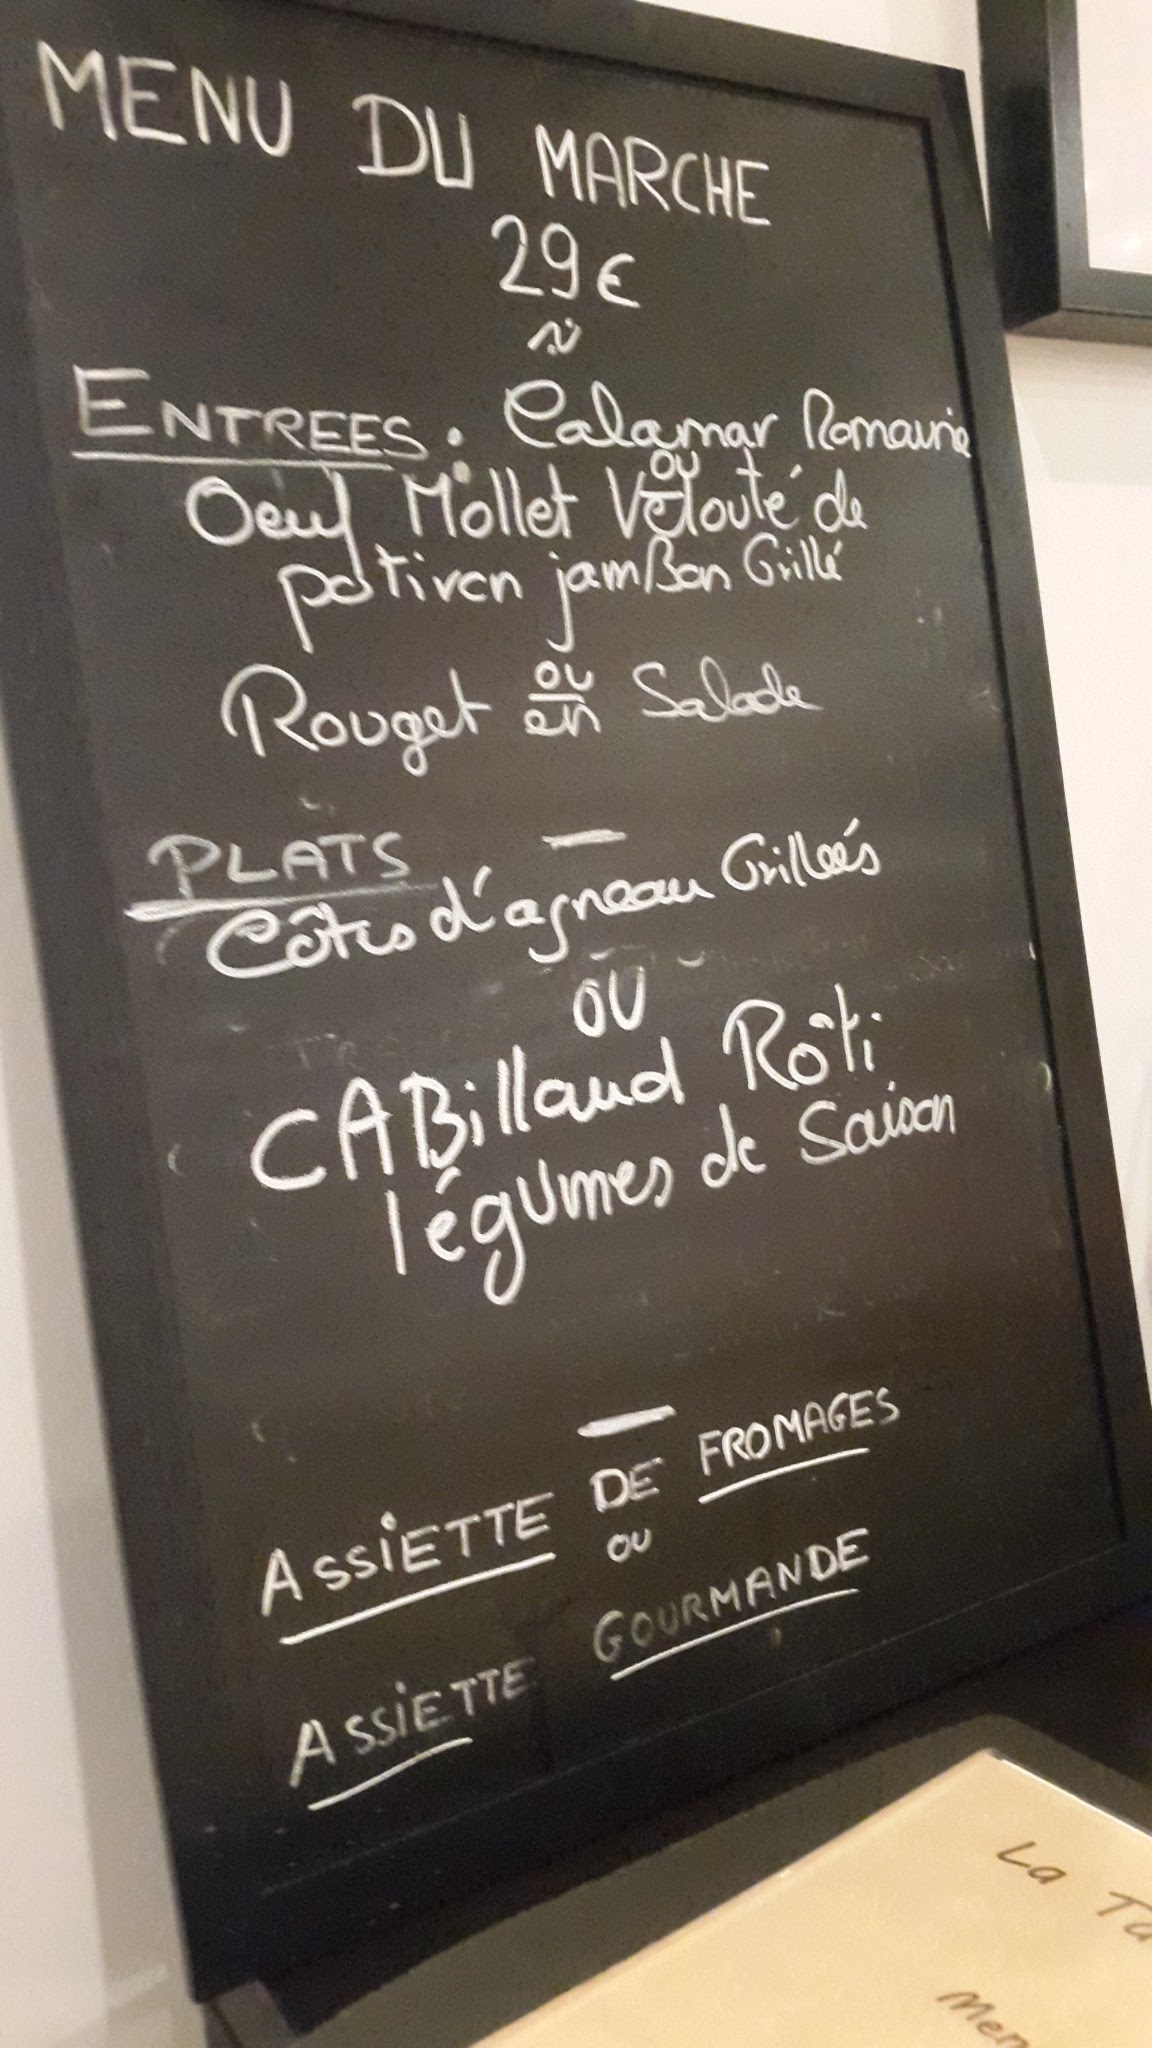 MENU DU MARCHE
29€
ENTREES: Calamar Romaine
ou
Oeuf Mollet Velouté de
potiron jamBon Grillé
ou
Rouget en Salade
PLATS
Côtes d'agneau Grilleés
OU
CABillaud Rôti
légumes de Saison
ASSiETTE DE FROMAGES
ou
ASSiETTE GOURMANDE
La Ta
Men